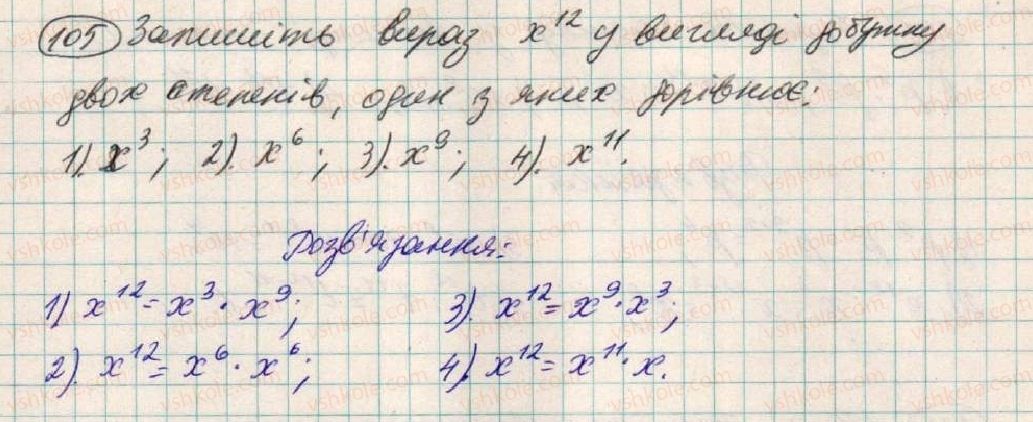 105 Запишіть вираз x¹² у вигляді добутку
двох степенів, один з яких дорівнює:
1). x³; 2). x⁶; 3). x⁹; 4). x¹¹.
Розв'язання:
1) x¹² = x³ · x⁹; 3). x¹² = x⁹ · x³;
2). x¹² = x⁶ · x⁶; 4). x¹² = x¹¹ · x.